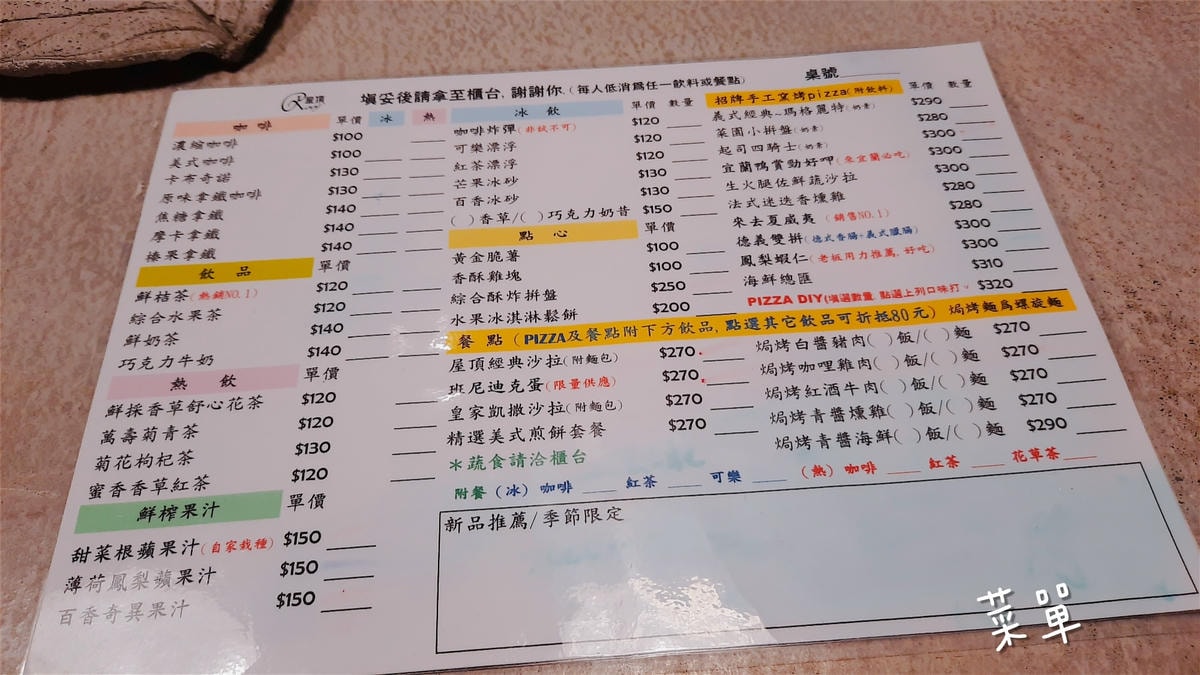 屋頂
填妥後請拿至櫃台,謝謝你.(每人低消為任一飲料或餐點)
桌號
咖啡 單價 冰 熱
濃縮咖啡 $100
美式咖啡 $100
卡布奇諾 $130
原味拿鐵咖啡 $130
焦糖拿鐵 $140
摩卡拿鐵 $140
榛果拿鐵 $140
飲品 單價
鮮桔茶(熱銷NO.1) $120
綜合水果茶 $120
鮮奶茶 $140
巧克力牛奶 $140
熱飲 單價
鮮採香草舒心花茶 $120
萬壽菊青茶 $120
菊花枸杞茶 $130
蜜香香草紅茶 $120
鮮榨果汁 單價
甜菜根蘋果汁(自家栽種) $150
薄荷鳳梨蘋果汁 $150
百香奇異果汁 $150
冰飲 單價 數量
咖啡炸彈(非試不可) $120
可樂漂浮 $120
紅茶漂浮 $120
芒果冰砂 $130
百香冰砂 $130
( )香草/( )巧克力奶昔 $150
點心 單價
黃金脆薯 $100
香酥雞塊 $100
綜合酥炸拼盤 $250
水果冰淇淋鬆餅 $200
招牌手工窯烤pizza(附飲料) 單價 數量
義式經典~瑪格麗特(奶素) $290
菜園小拼盤(奶素) $280
起司四騎士(奶素) $300
宜蘭鴨賞勁好呷(來宜蘭必吃) $300
生火腿佐鮮蔬沙拉 $300
法式迷迭香燻雞 $280
來去夏威夷(銷售NO.1) $280
德義雙拼(德式香腸+義式臘腸) $300
鳳梨蝦仁(老板用力推薦,好吃) $300
海鮮總匯 $310
PIZZA DIY(填選數量,點選上列口味打ˇ $320
餐點(PIZZA及餐點附下方飲品,點選其它飲品可折抵80元) 焗烤麵為螺旋麵
屋頂經典沙拉(附麵包) $270
班尼迪克蛋(限量供應) $270
皇家凱撒沙拉(附麵包) $270
精選美式煎餅套餐 $270
*蔬食請洽櫃台
焗烤白醬豬肉( )飯/( )麵 $270
焗烤咖哩雞肉( )飯/( )麵 $270
焗烤紅酒牛肉( )飯/( )麵 $270
焗烤青醬燻雞( )飯/( )麵 $270
焗烤青醬海鮮( )飯/( )麵 $290
附餐(冰)咖啡 紅茶 可樂 (熱)咖啡 紅茶 花草茶
新品推薦/季節限定
菜單